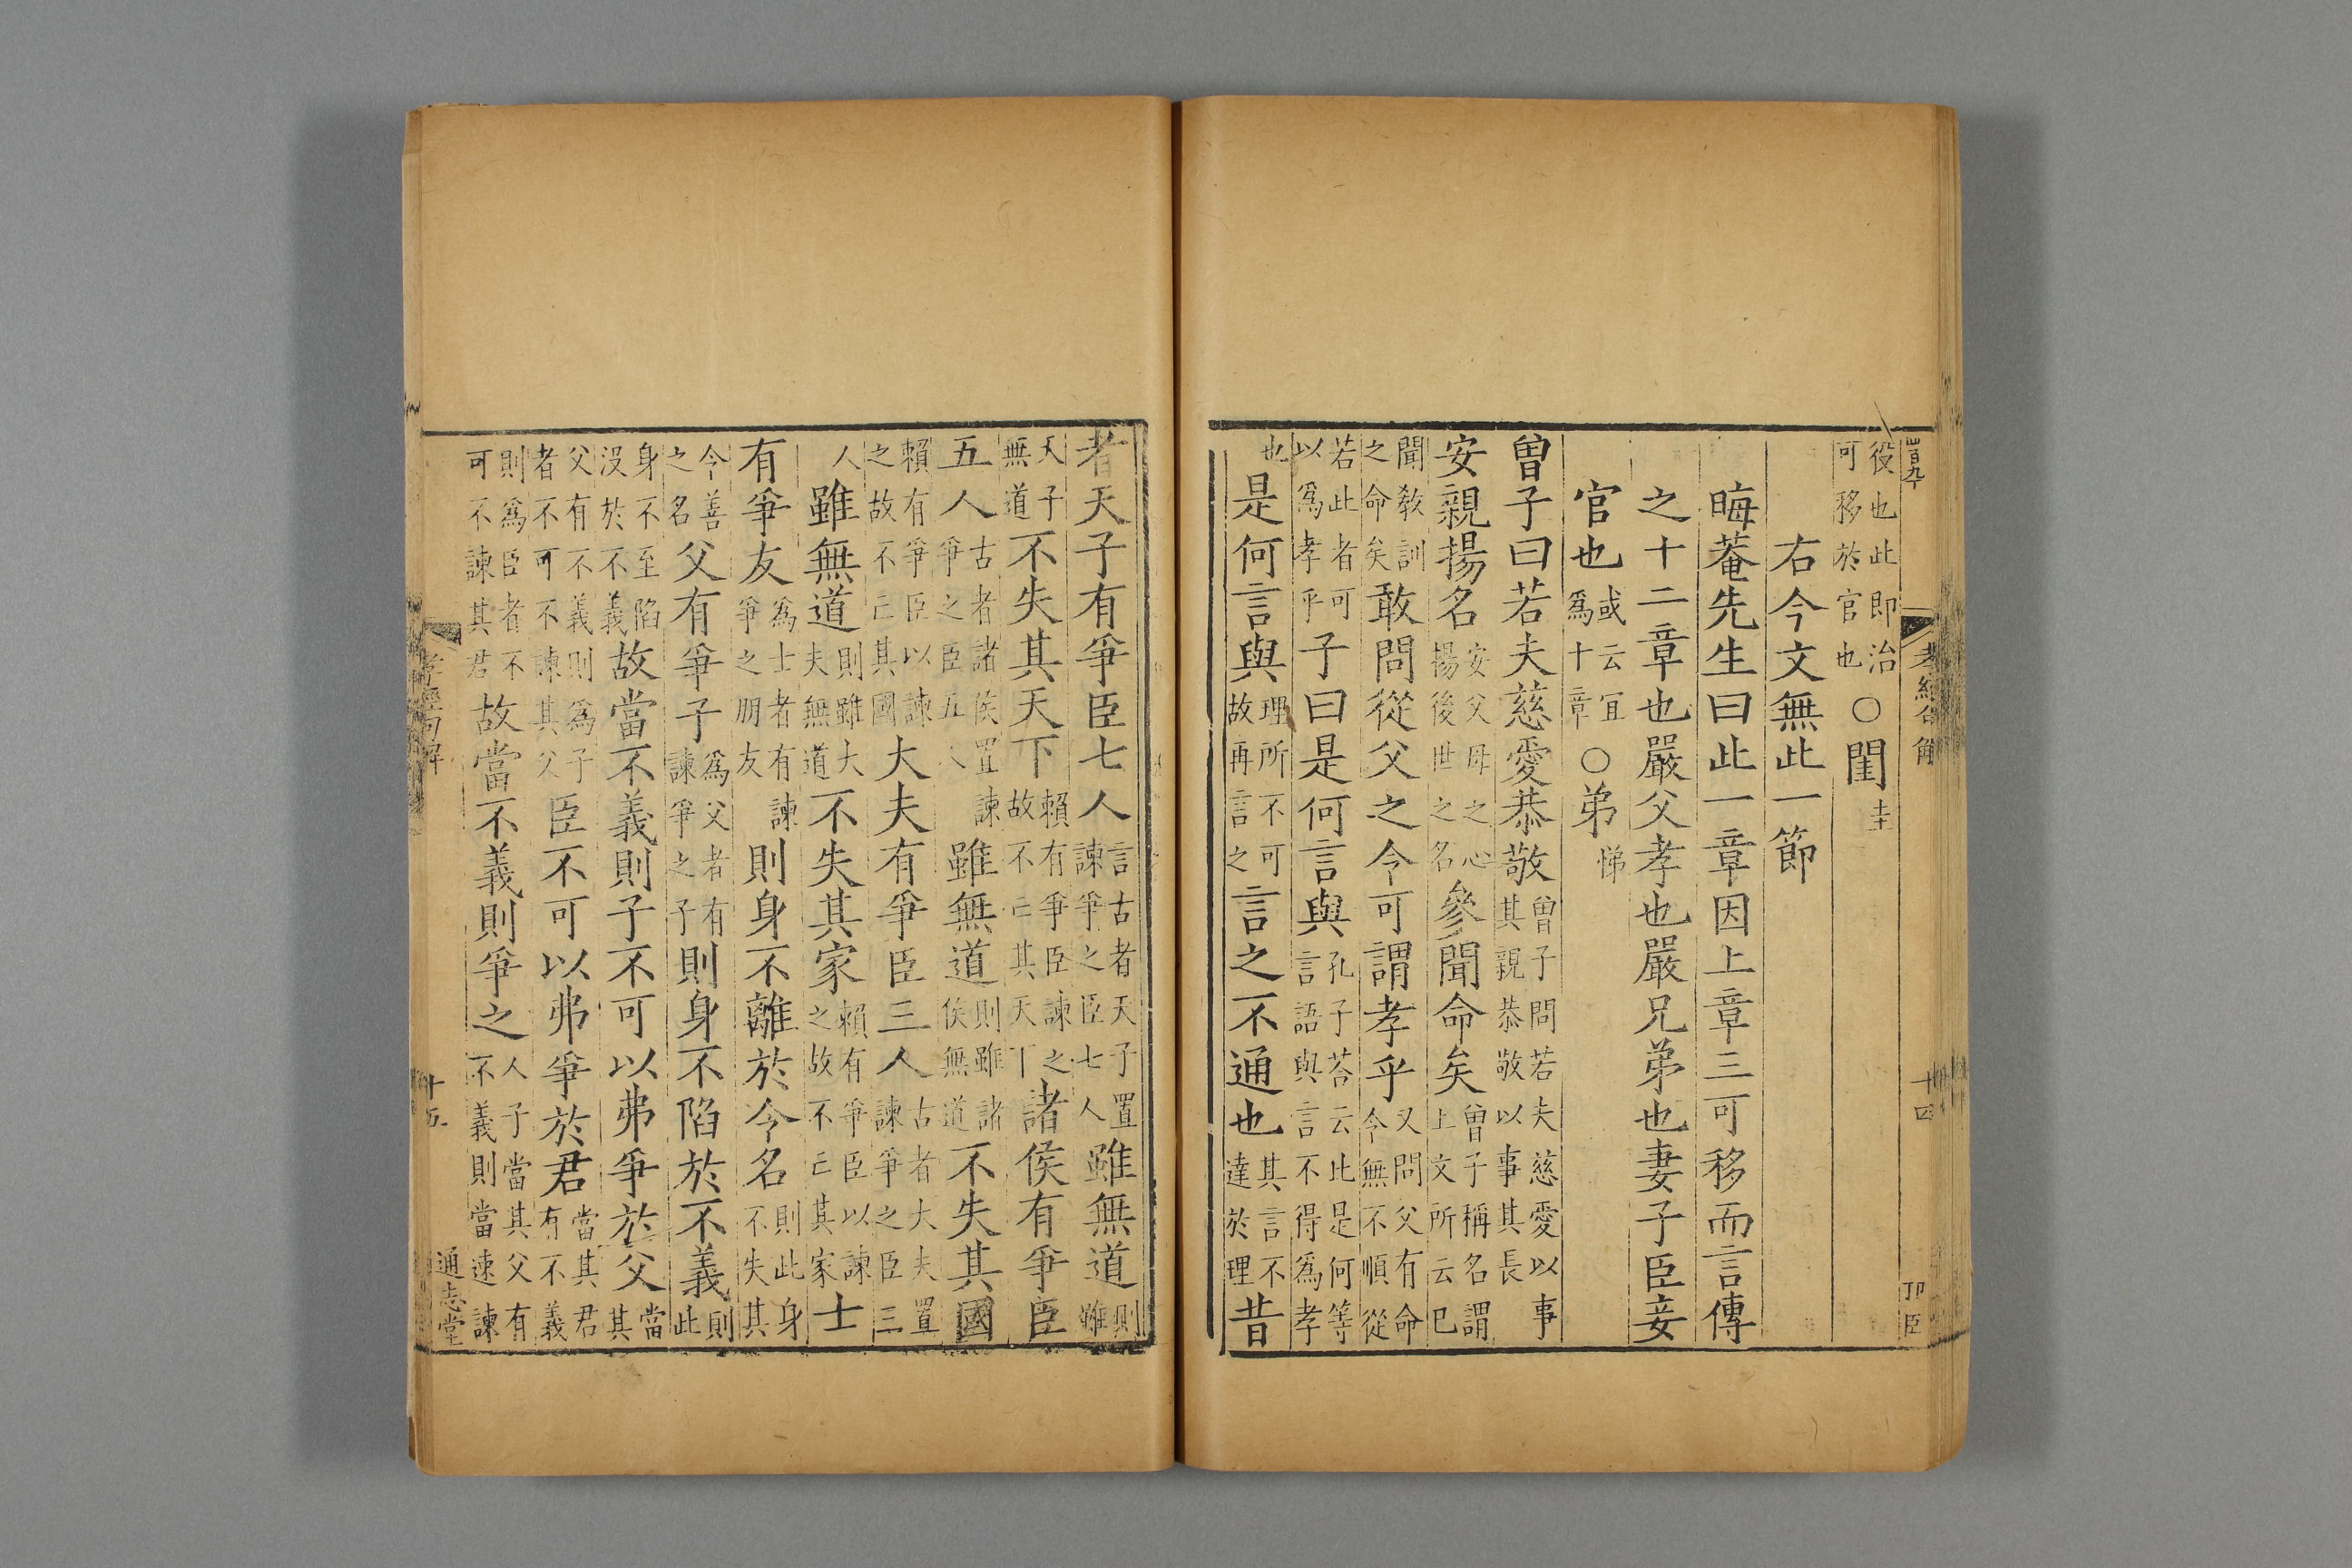 孝經句解
十四
役也此即治可移於官也○閨圭
右今文無此一節
晦菴先生曰此一章因上章三可移而言傳
之十二章也嚴父孝也嚴兄弟也妻子臣妾
官也或云宜爲十章○弟悌
曾子曰若夫慈愛恭敬曾子問若夫慈愛以事其親恭敬以事其長
安親揚名安父母之心揚後世之名參聞命矣曾子稱名謂上文所云巳
聞敎訓之命矣敢問從父之令可謂孝乎又問父有命今無不順從
若此者可以爲孝乎子曰是何言與孔子荅云此是何等言語與言不得爲孝
也是何言與理所不可故再言之言之不通也其言不達於理昔
者天子有爭臣七人言古者天子置諫爭之臣七人雖無道則雖
天子無道不失其天下賴有爭臣諫之故不亡其天下諸侯有爭臣
五人古者諸侯置諫爭之臣五人雖無道則雖諸侯無道不失其國
賴有爭臣以諫之故不亡其國大夫有爭臣三人古者大夫置諫爭之臣三
人雖無道則雖大夫無道不失其家賴有爭臣以諫之故不亡其家士
有爭友爲士者有諫爭之朋友則身不離於令名則此身不失其
令善之名父有爭子爲父者有諫爭之子則身不陷於不義則此
身不至陷沒於不義故當不義則子不可以弗爭於父當其
父有不義則爲子者不可不諫其父臣不可以弗爭於君當其君有不義
則爲臣者不可不諫其君故當不義則爭之人子當其父有不義則當速諫
孝經句解
十五
通志堂